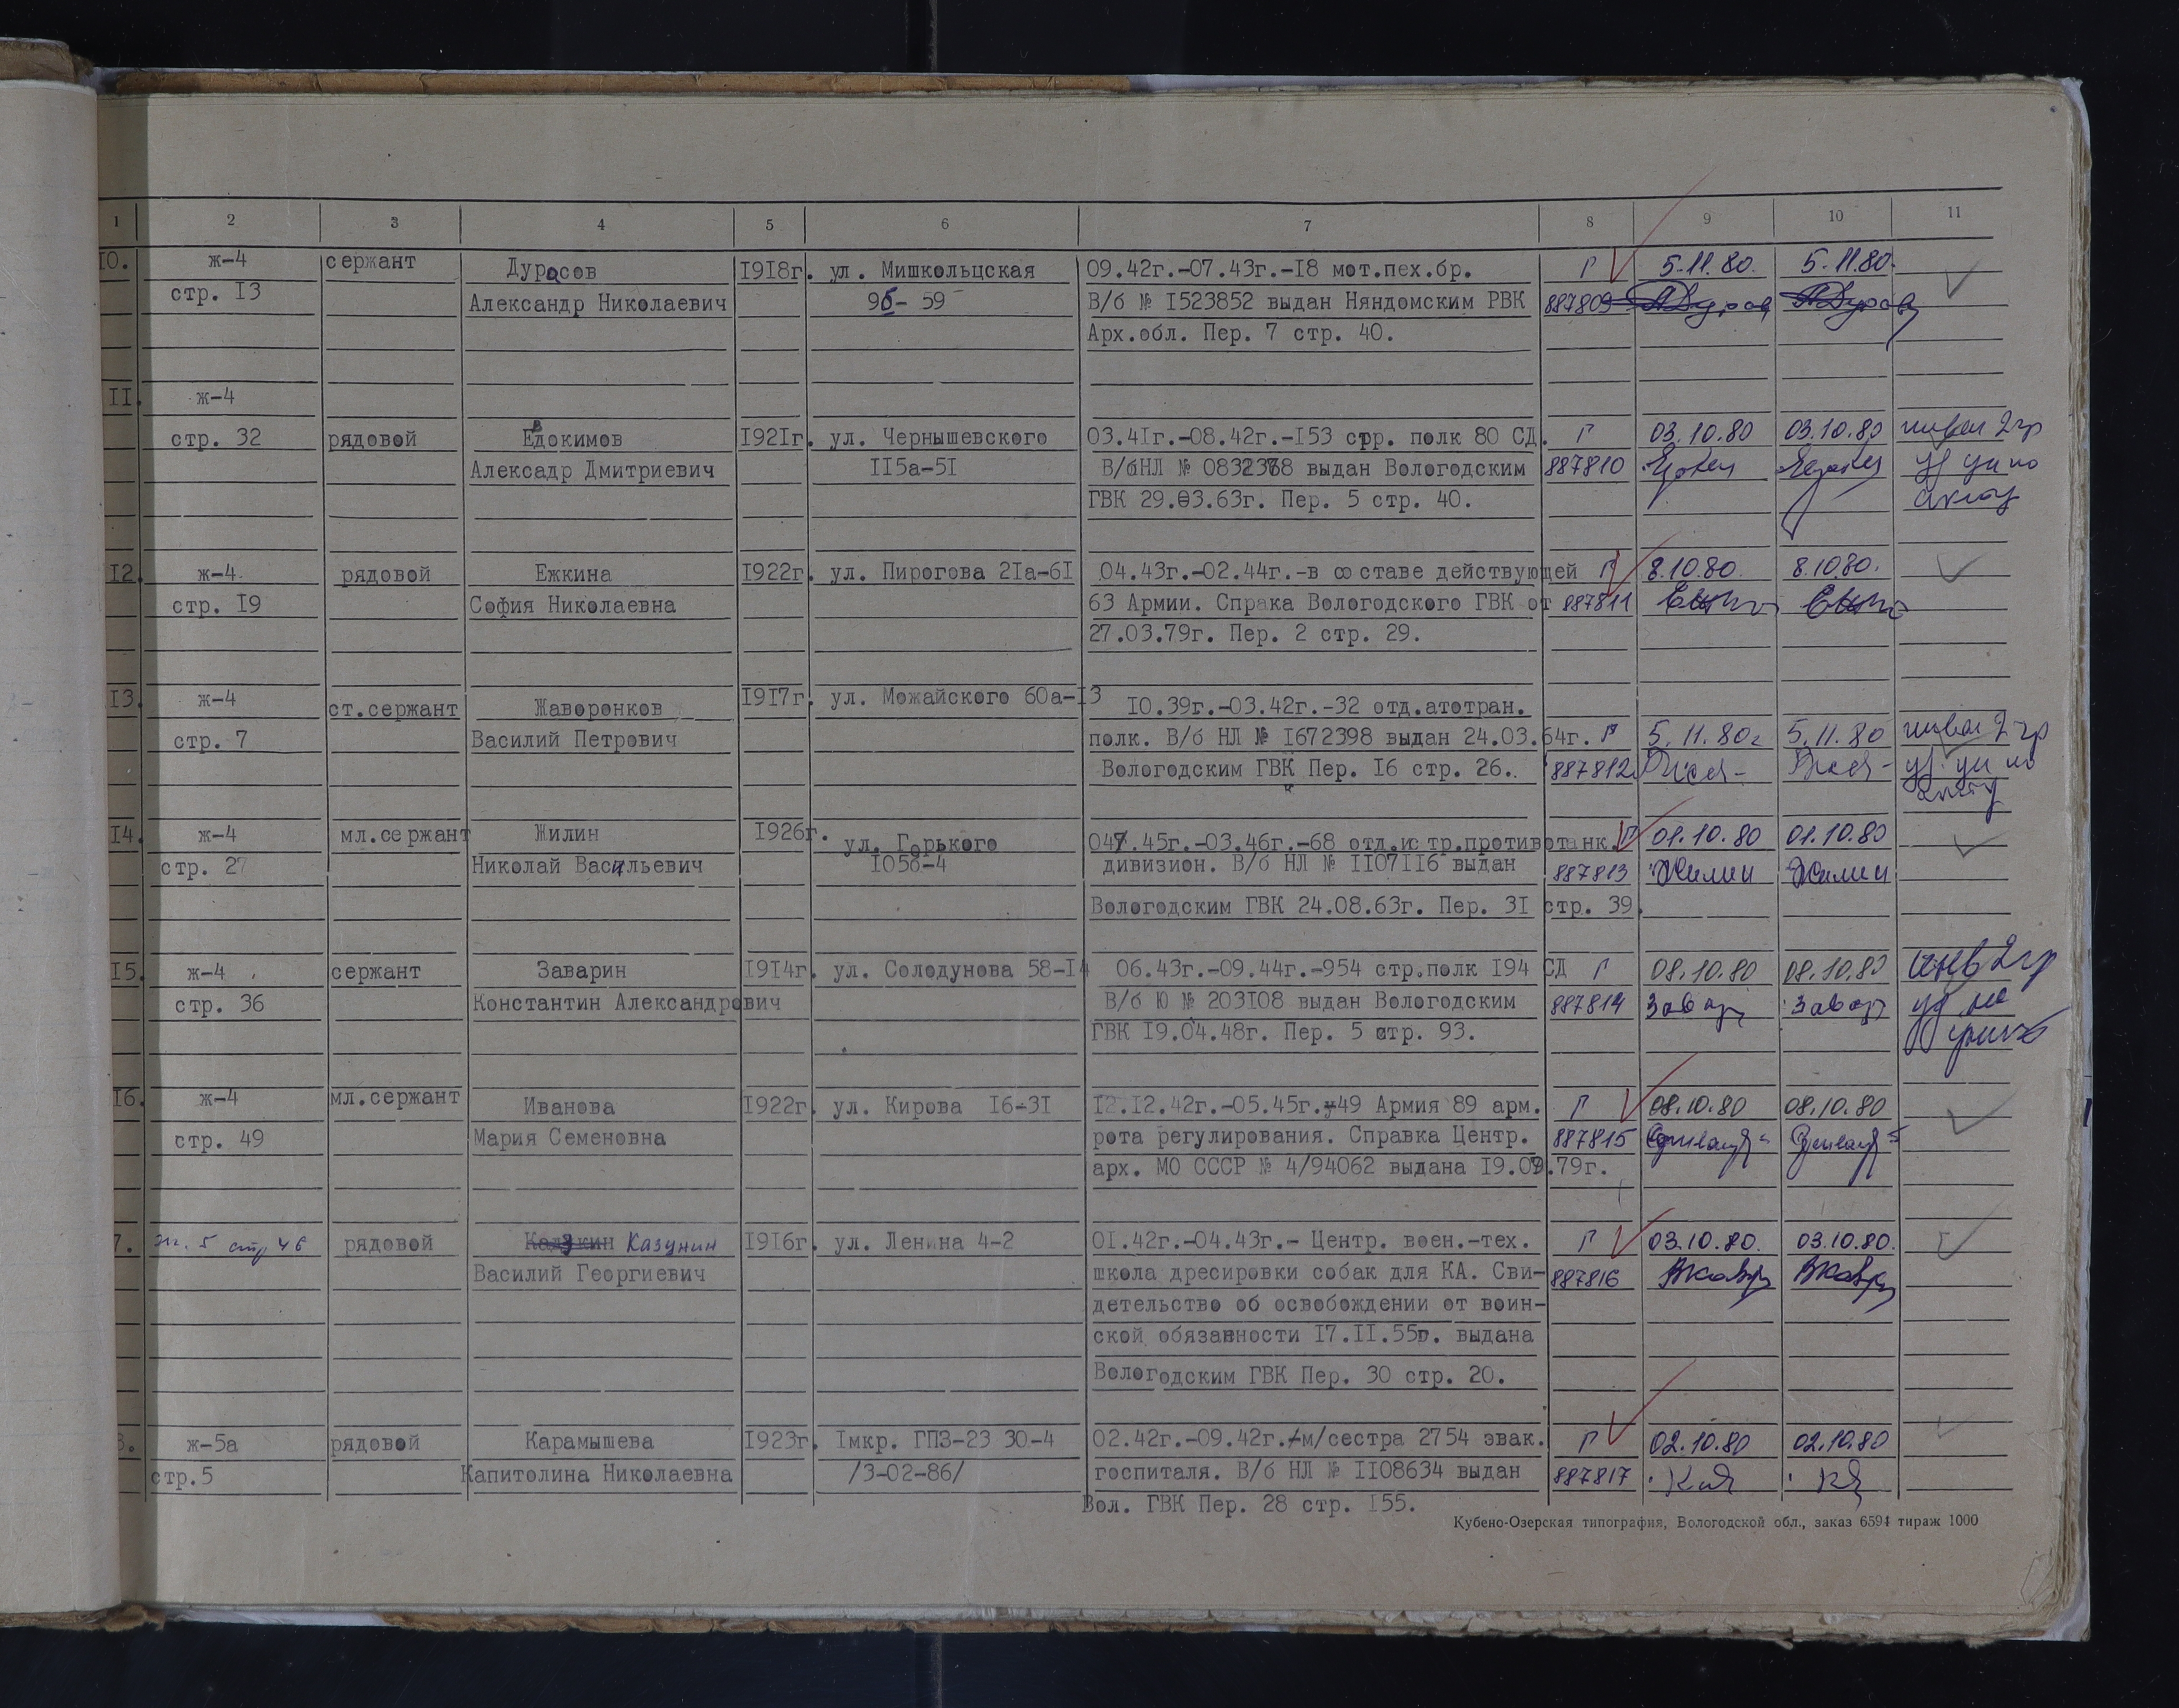 1 2 3 4 5 6 7 8 9 10 11
10. ж-4 сержант Дурасов 1918г. ул. Мишкольцская 09.42г.-07.43г.-18 мот.пех.бр. Г 5.11.80. 5.11.80.
стр. 13 Александр Николаевич 9б- 59 В/б № 1523852 выдан Няндомским РВК 887809
Арх.обл. Пер. 7 стр. 40.
11. ж-4
стр. 32 рядовой Евдокимов 1921г. ул. Чернышевского 03.41г.-08.42г.-153 стр. полк 80 СД. Г 03.10.80 03.10.80
Алексадр Дмитриевич 115а-51 В/бНЛ № 0832368 выдан Вологодским 887810
ГВК 29.03.63г. Пер. 5 стр. 40.
12. ж-4. рядовой Ежкина 1922г. ул. Пирогова 21а-61 04.43г.-02.44г.-в составе действующей Г 8.10.80. 8.10.80.
стр. 19 София Николаевна 63 Армии. Спрака Вологодского ГВК от 887811
27.03.79г. Пер. 2 стр. 29.
13. ж-4 ст.сержант Жаворонков 1917г. ул. Можайского 60а-13 10.39г.-03.42г.-32 отд.атотран.
стр. 7 Василий Петрович полк. В/б НЛ № 1672398 выдан 24.03.64г. Г 5.11.80г 5.11.80
Вологодским ГВК Пер. 16 стр. 26. 887812
14. ж-4 мл.сержант Жилин 1926г. ул. Горького 047.45г.-03.46г.-68 отд.истр.противотанк. Г 01.10.80 01.10.80
стр. 27 Николай Васильевич 105б-4 дивизион. В/б НЛ № 1107116 выдан 887813 Жилин Жилин
Вологодским ГВК 24.08.63г. Пер. 31 стр. 39.
15. ж-4 сержант Заварин 1914г. ул. Солодунова 58-14 06.43г.-09.44г.-954 стр.полк 194 СД Г 08.10.80 08.10.80 инв 2гр
стр. 36 Константин Александрович В/б Ю № 203108 выдан Вологодским 887814 Завар Завар
ГВК 19.04.48г. Пер. 5 стр. 93.
16. ж-4 мл.сержант Иванова 1922г. ул. Кирова 16-31 12.12.42г.-05.45г.-49 Армия 89 арм. Г 08.10.80 08.10.80
стр. 49 Мария Семеновна рота регулирования. Справка Центр. 887815
арх. МО СССР № 4/94062 выдана 19.09.79г.
7. ж. 5 стр 46 рядовой Казунин 1916г. ул. Ленина 4-2 01.42г.-04.43г.- Центр. воен.-тех. Г 03.10.80. 03.10.80.
Василий Георгиевич школа дресировки собак для КА. Сви- 887816
детельство об освобождении от воин-
ской обязанности 17.11.55г. выдана
Вологодским ГВК Пер. 30 стр. 20.
8. ж-5а рядовой Карамышева 1923г. 1мкр. ГПЗ-23 30-4 02.42г.-09.42г.-м/сестра 2754 эвак. Г 02.10.80 02.10.80
стр.5 Капитолина Николаевна /3-02-86/ госпиталя. В/б НЛ № 1108634 выдан 887817
Вол. ГВК Пер. 28 стр. 155.
Кубено-Озерская типография, Вологодской обл., заказ 6594 тираж 1000